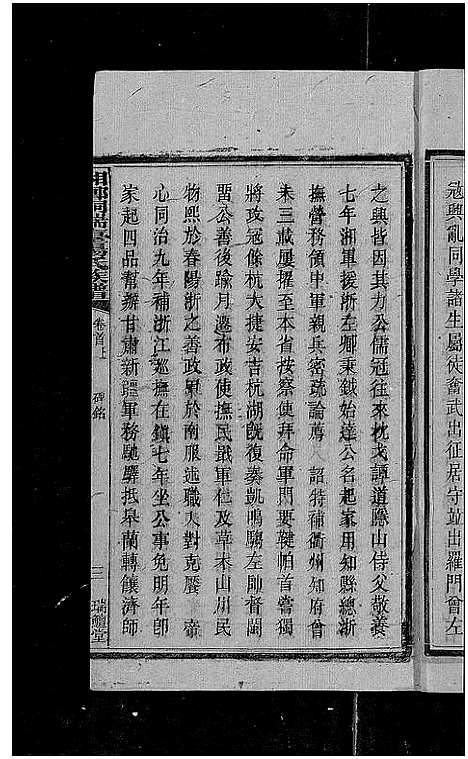 寇興亂同學諸生屬徒奮武出征居守並出羅門會左
之興皆因其力公儒冠往來枕戈譚道隱山侍父敬養
七年湘軍援浙左卿秉鉞始達公名起家用知縣總浙
撫營務領中軍親兵密疏論薦 詔特補衢州知府曾
未三載屢擢至本省按察使拜命軍門要鞬帕首嘗獨
將攻冠餘杭大捷安吉杭湖既復奏凱鳴騶左帥督閩
留公善後踰月遷布政使撫民戢軍仁及草木山川民
物熙於春陽浙之善政累於南服述職入對克饜 帝
心同治九年補浙江巡撫在鎮七年坐公事免明年卽
家起四品幫辦甘肅新疆軍務馳驛抵皋蘭轉饟濟師
湘鄉洞冲楊氏族譜
卷首上 碑銘
三 瑞體堂